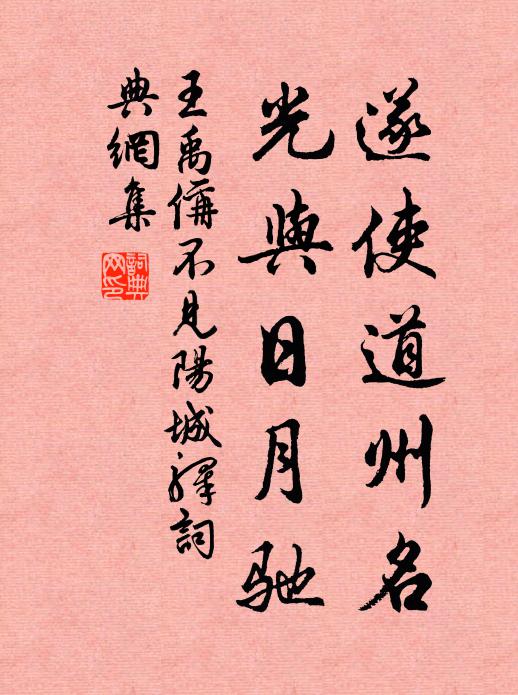 遂使道州名
光與日月馳
王禹偁不見陽城驛詞
典網集
詞典網印